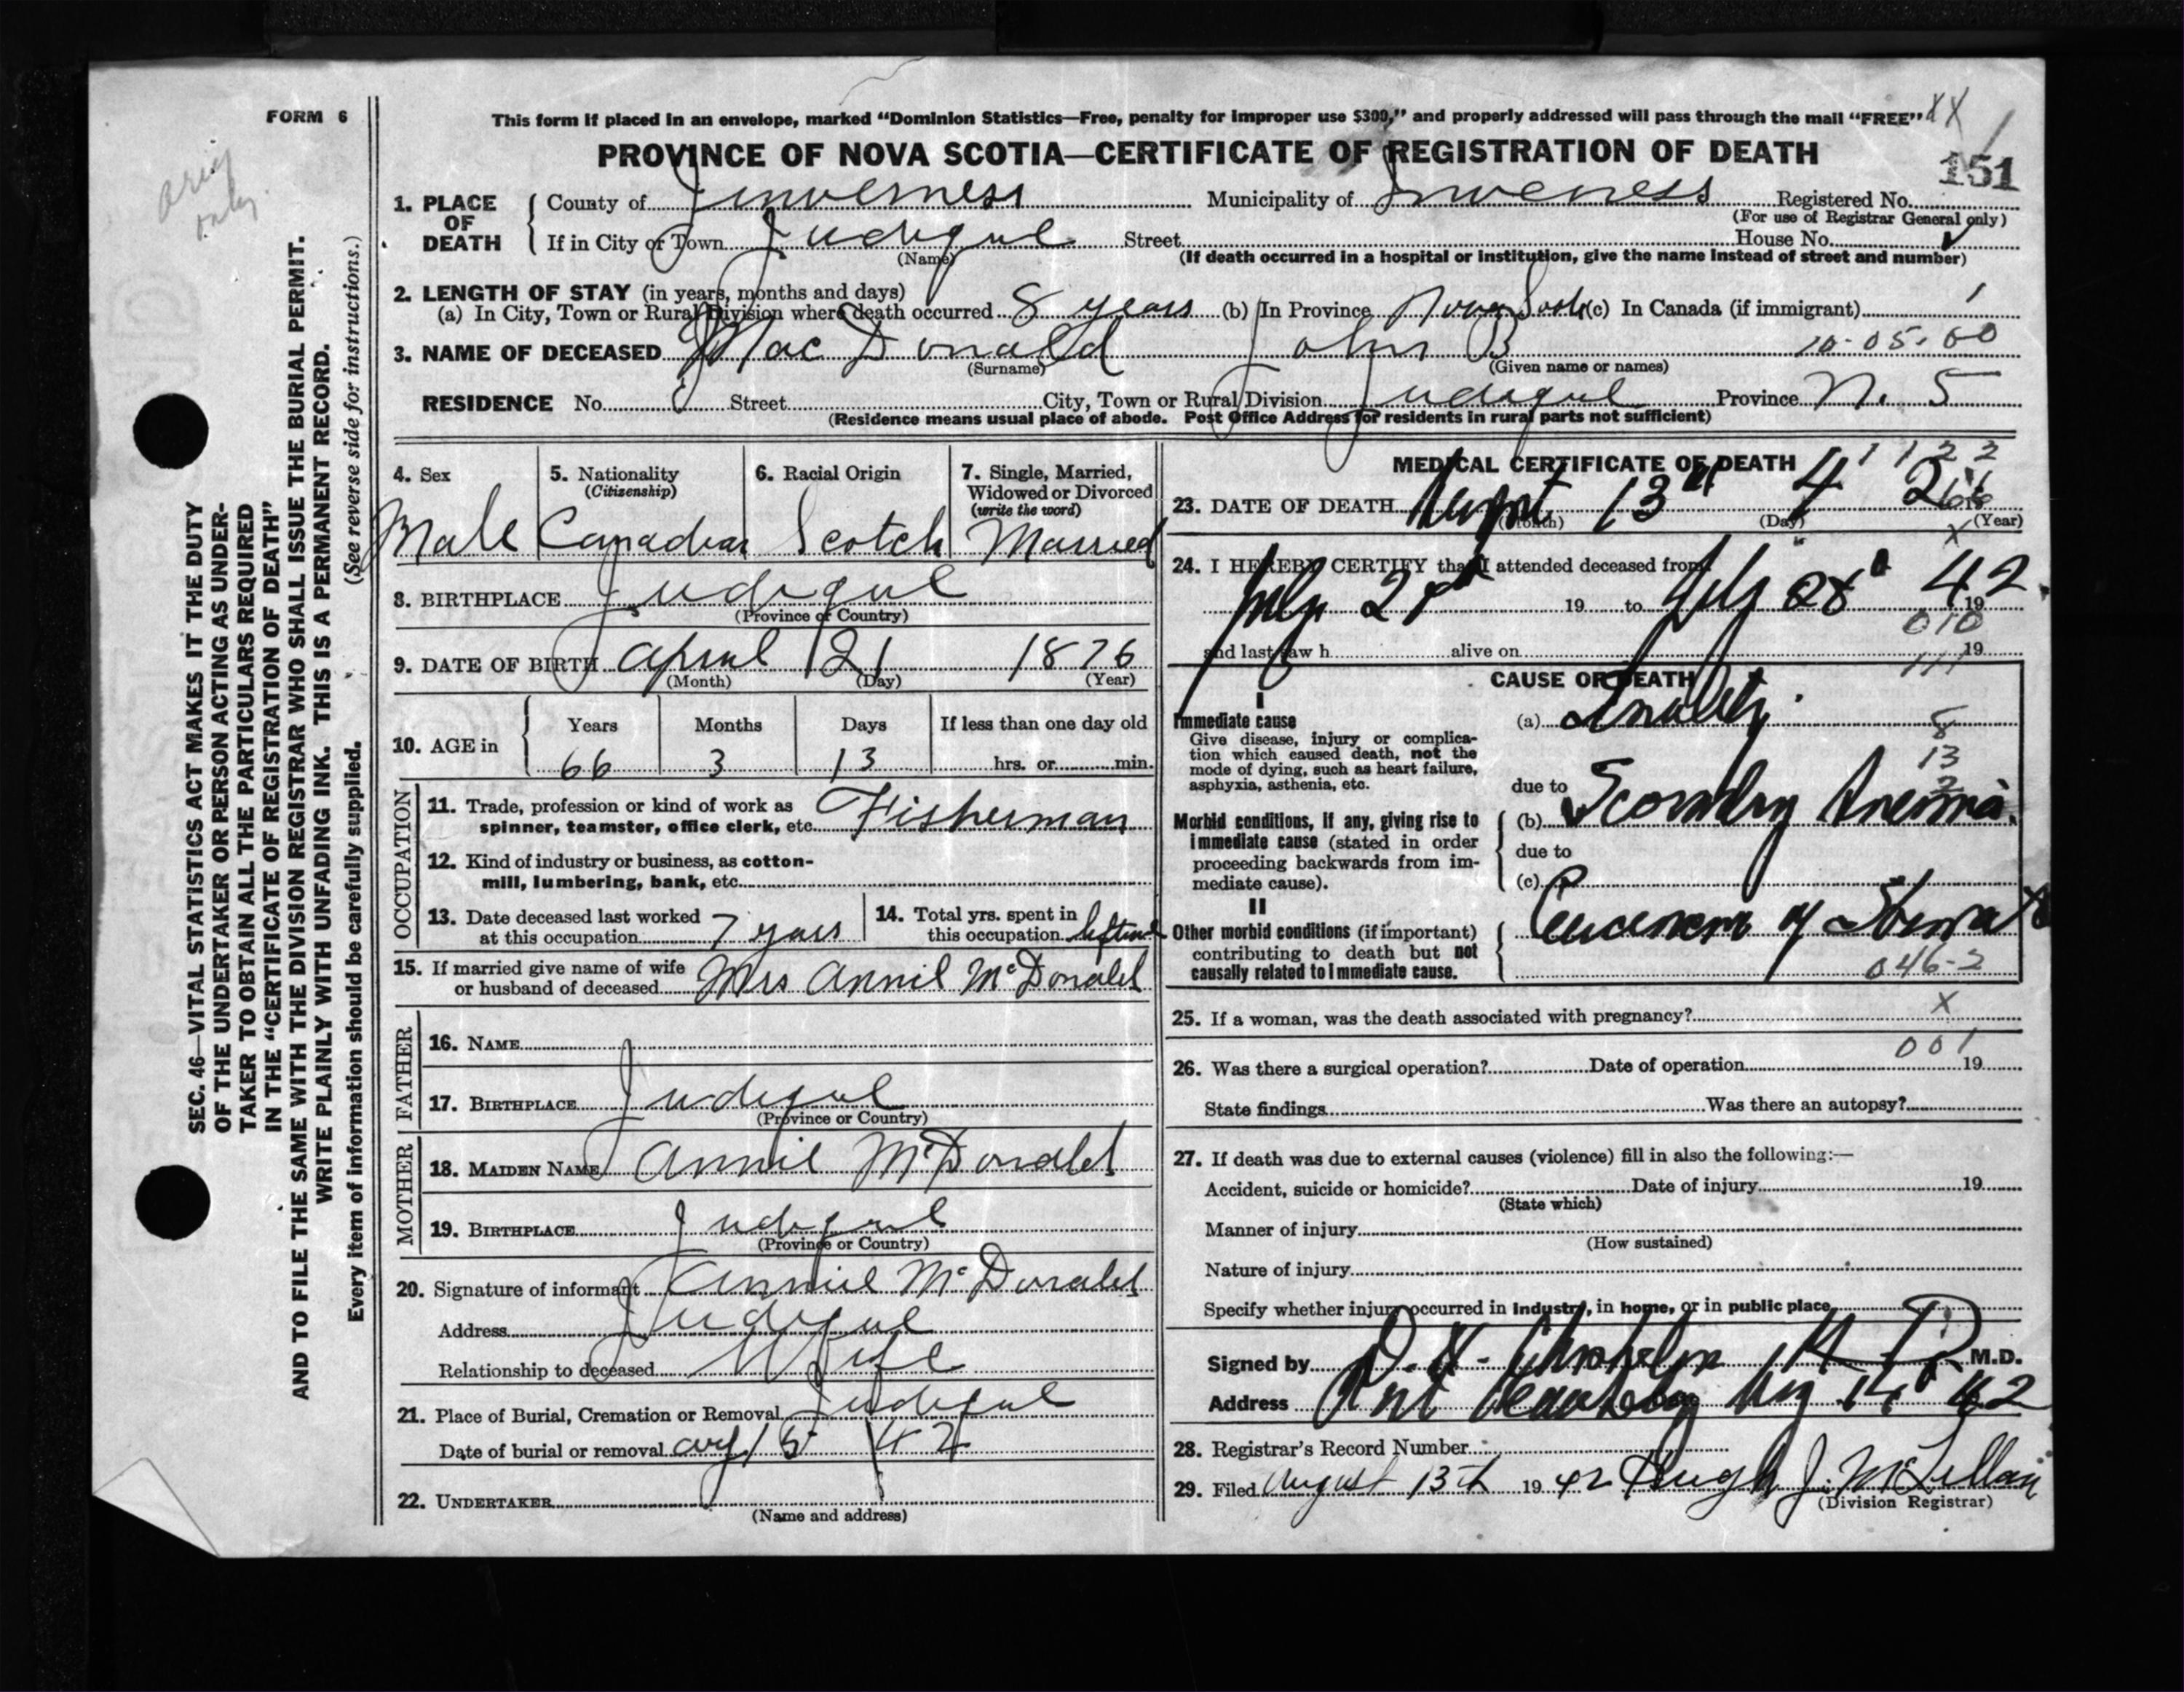 FORM 6
This form if placed in an envelope, marked "Dominion Statistics—Free, penalty for improper use $300," and properly addressed will pass through the mail "FREE" XX
PROVINCE OF NOVA SCOTIA—CERTIFICATE OF REGISTRATION OF DEATH
151
1. PLACE OF DEATH
County of Inverness Municipality of Inverness Registered No.
(For use of Registrar General only)
If in City or Town Judique Street House No.
(Name)
(If death occurred in a hospital or institution, give the name instead of street and number)
2. LENGTH OF STAY (in years, months and days)
(a) In City, Town or Rural Division where death occurred 8 years (b) In Province Nova Scotia (c) In Canada (if immigrant) 1
3. NAME OF DECEASED Mac Donald John B 10-05-60
(Surname) (Given name or names)
RESIDENCE No. Street City, Town or Rural Division Judique Province N. S
(Residence means usual place of abode. Post Office Address for residents in rural parts not sufficient)
4. Sex
Male
5. Nationality
(Citizenship)
Canadian
6. Racial Origin
Scotch
7. Single, Married,
Widowed or Divorced
(write the word)
Married
8. BIRTHPLACE Judique
(Province or Country)
9. DATE OF BIRTH April 21 1876
(Month) (Day) (Year)
10. AGE in
Years Months Days If less than one day old
66 3 13 hrs. or min.
OCCUPATION
11. Trade, profession or kind of work as
spinner, teamster, office clerk, etc. Fisherman
12. Kind of industry or business, as cotton-
mill, lumbering, bank, etc.
13. Date deceased last worked
at this occupation 7 years
14. Total yrs. spent in
this occupation lifetime
15. If married give name of wife
or husband of deceased Mrs Annie McDonald
FATHER
16. NAME
17. BIRTHPLACE Judique
(Province or Country)
MOTHER
18. MAIDEN NAME Annie McDonald
19. BIRTHPLACE Judique
(Province or Country)
20. Signature of informant Annie McDonald
Address Judique
Relationship to deceased Wife
21. Place of Burial, Cremation or Removal Judique
Date of burial or removal Aug 15 42
22. UNDERTAKER
(Name and address)
MEDICAL CERTIFICATE OF DEATH
1 1 2 2
23. DATE OF DEATH 13th 42
(Month) (Day) (Year)
24. I HEREBY CERTIFY that I attended deceased from
July 19 to July 28 19 42
010
and last saw h alive on 19
111
CAUSE OF DEATH
I
Immediate cause
Give disease, injury or complica-
tion which caused death, not the
mode of dying, such as heart failure,
asphyxia, asthenia, etc.
(a)
8
13
2
due to
Morbid conditions, if any, giving rise to
immediate cause (stated in order
proceeding backwards from im-
mediate cause).
(b) Secondary Anemia
due to
(c)
II
Other morbid conditions (if important)
contributing to death but not
causally related to immediate cause.
Carcinoma of Stomach
046-2
25. If a woman, was the death associated with pregnancy? X
001
26. Was there a surgical operation? Date of operation 19
State findings Was there an autopsy?
27. If death was due to external causes (violence) fill in also the following:—
Accident, suicide or homicide? Date of injury 19
(State which)
Manner of injury
(How sustained)
Nature of injury
Specify whether injury occurred in industry, in home, or in public place
Signed by M.D.
Address Port Hawkesbury Aug 14 42
28. Registrar's Record Number
29. Filed August 13th 1942 Hugh J. McLellan
(Division Registrar)
SEC. 46—VITAL STATISTICS ACT MAKES IT THE DUTY
OF THE UNDERTAKER OR PERSON ACTING AS UNDER-
TAKER TO OBTAIN ALL THE PARTICULARS REQUIRED
IN THE "CERTIFICATE OF REGISTRATION OF DEATH"
AND TO FILE THE SAME WITH THE DIVISION REGISTRAR WHO SHALL ISSUE THE BURIAL PERMIT.
WRITE PLAINLY WITH UNFADING INK. THIS IS A PERMANENT RECORD.
Every item of information should be carefully supplied. (See reverse side for instructions.)